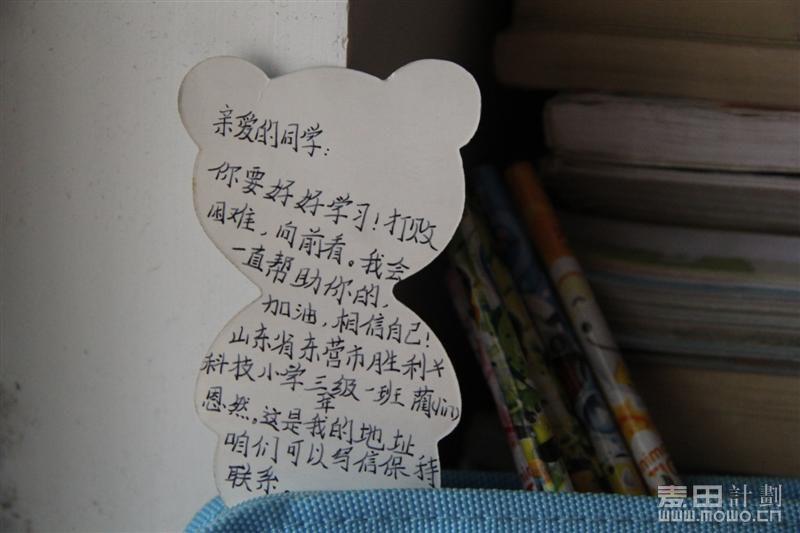 亲爱的同学：
你要好好学习！打败
困难，向前看。我会
一直帮助你的，
加油，相信自己！
山东省东营市胜利
科技小学三年级一班 蔺(lin)
恩然。这是我的地址，
咱们可以写信保持
联系。
麦田計劃
www.mowo.cn